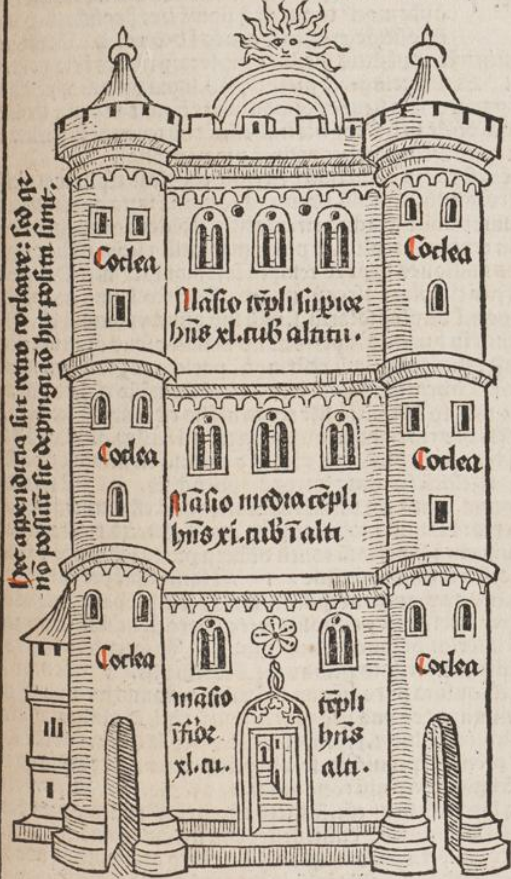 Hec appẽdicia sũt retro cocleare: sed qr
nõ possũt sic depingi iõ hic posita sunt.
Coclea
Coclea
Mãsio tẽpli supior
hñs xl. cub altitu.
Coclea
Coclea
Mãsio media tẽpli
hñs xl. cub ĩ alti
Coclea
Coclea
mãsio tẽpli
ĩfior hñs
xl. cu. alti.